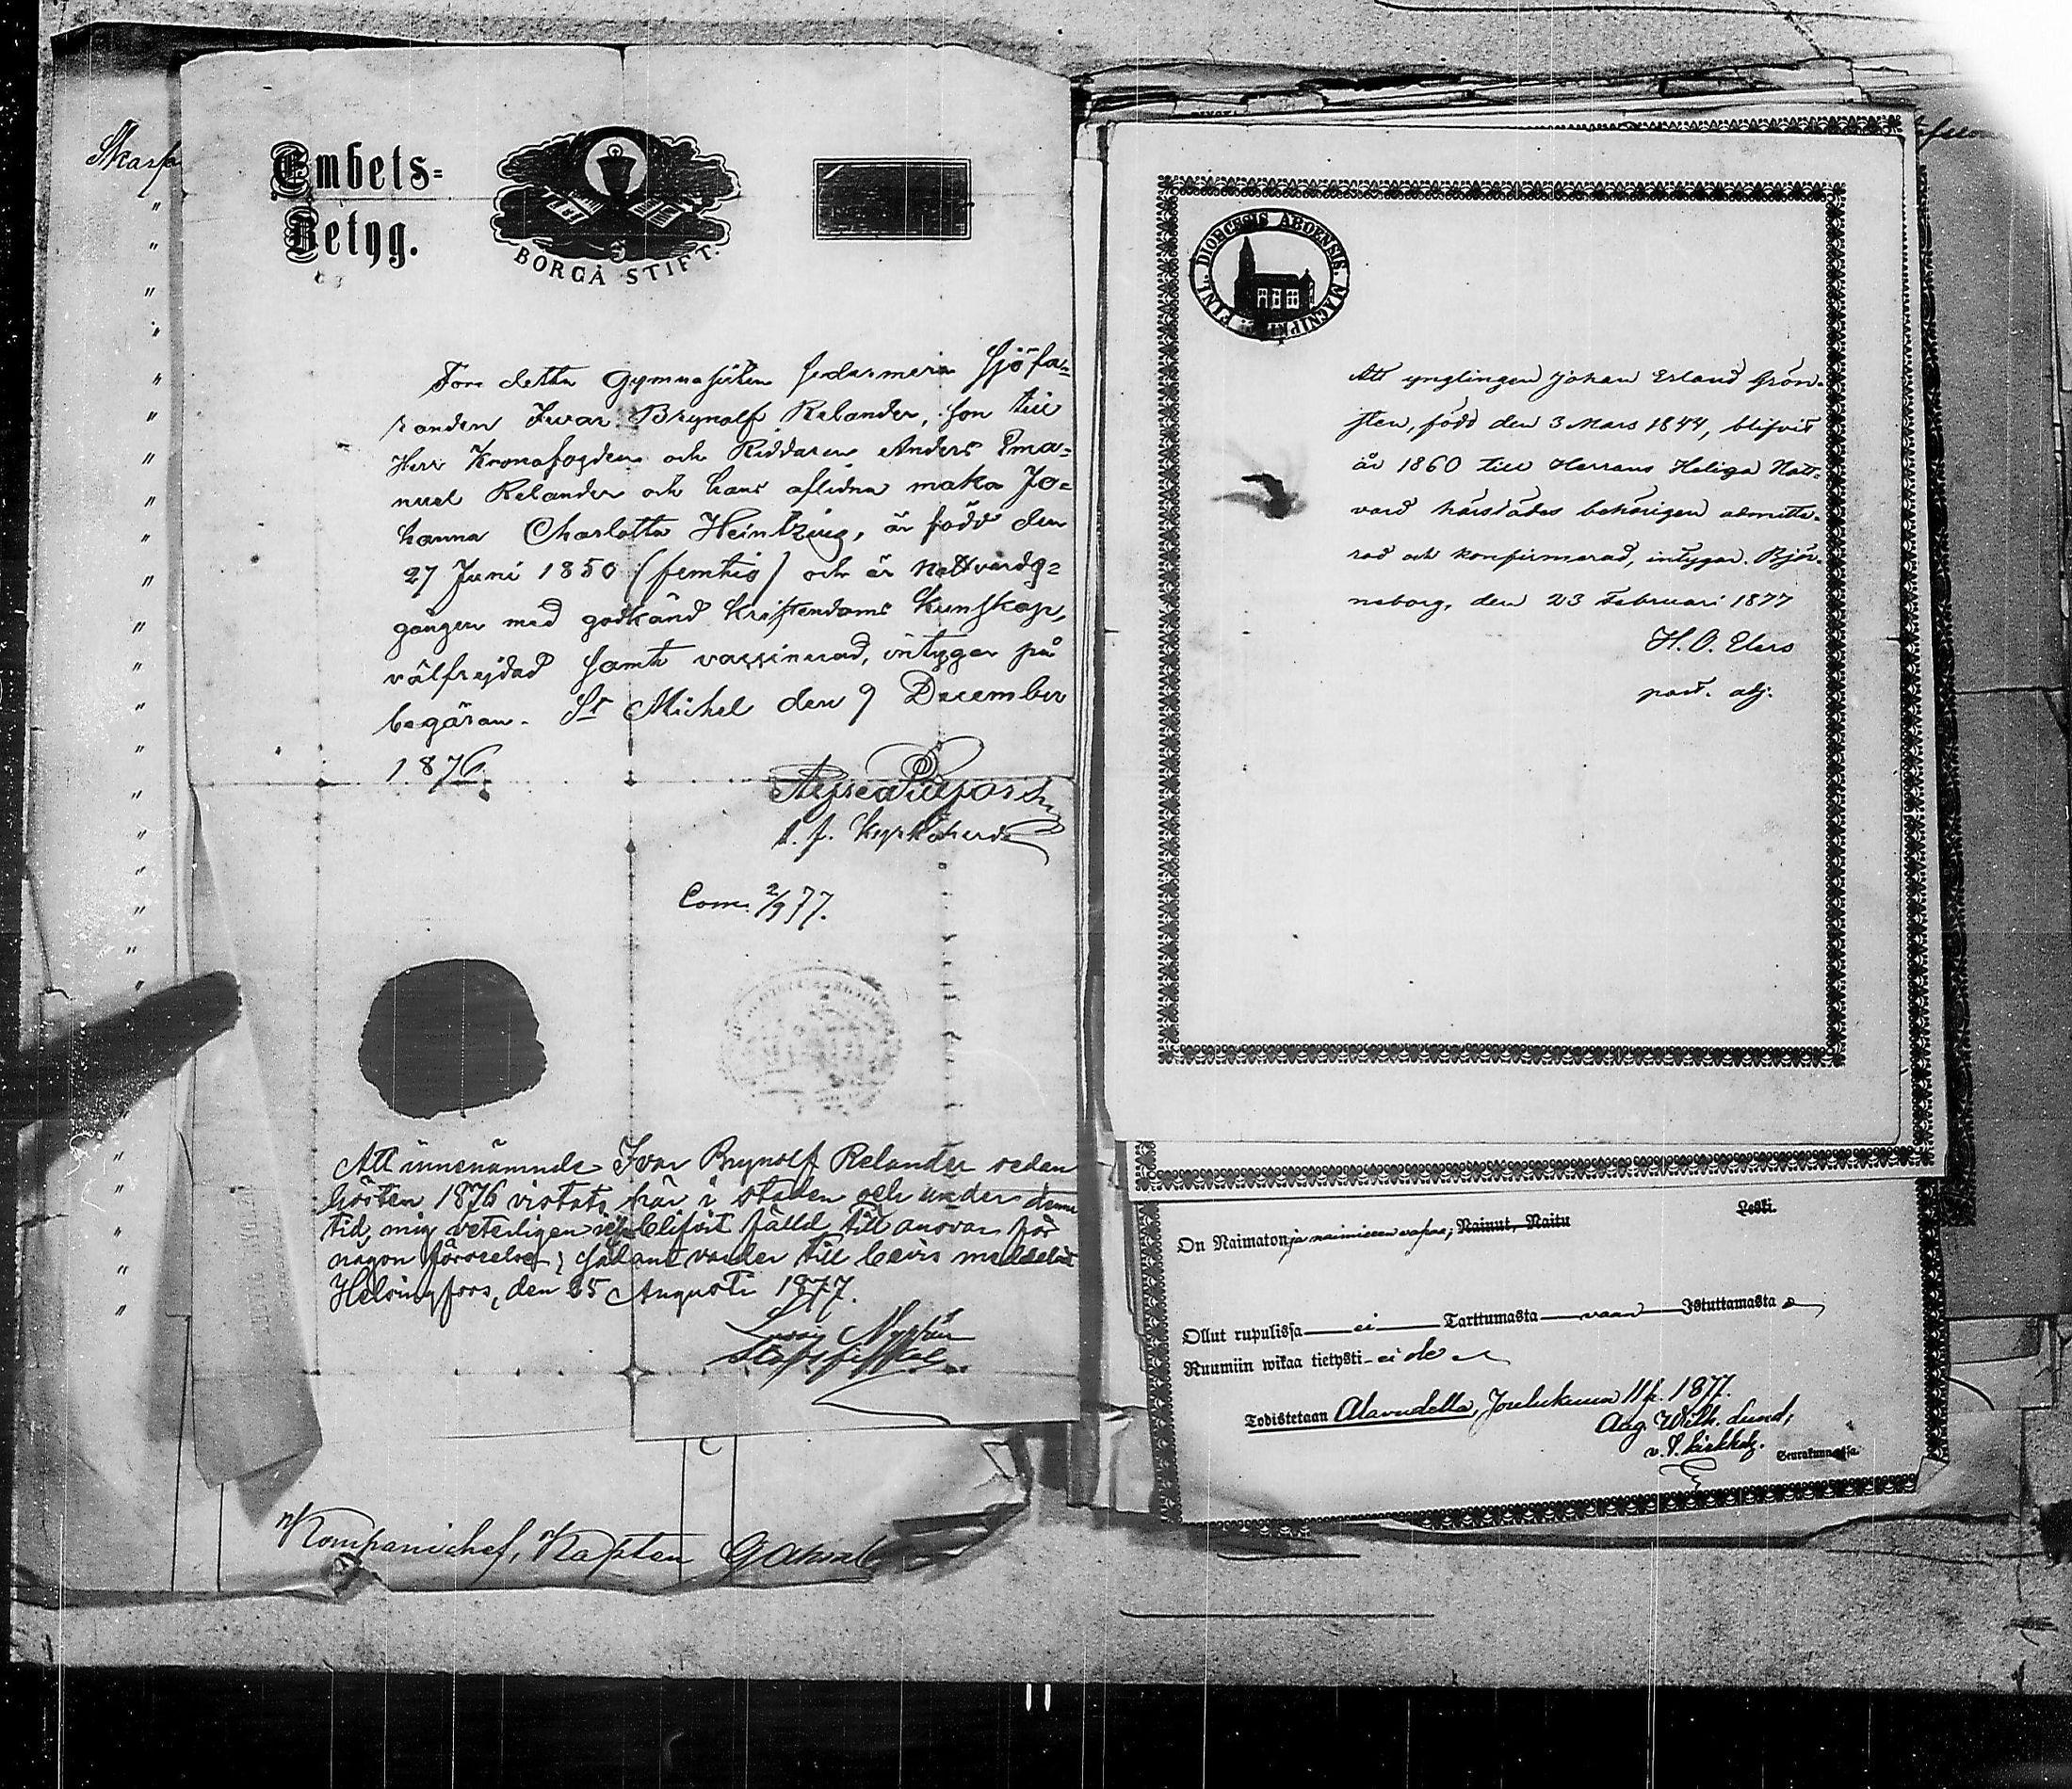 Skarp
Embets=
Betyg.
BORGÅ STIFT.
Före detta Gymnasisten sedermera Sjöfa=
randen Ivar Brynolf Relander, son till
Herr Kronofogden och Riddaren Anders Ema=
nuel Relander och hans aflidna maka Jo=
hanna Charlotta Heintzius, är född den
27 Juni 1850 (femtio) och är nattvardg=
gången med godkänd kristendoms kunskap,
välfrejdad samt vaccinerad, intygar på
begäran. St Michel den 9 December
1876.
Kyrkoherde
Com. 2/9 77.
Att innenämnde Ivar Brynolf Relander sedan
hösten 1876 vistats här i staden och under denna
tid, mig veterligen ej blifvit fälld till ansvar för
någon förseelse; sådant varder till bevis meddeladt
Helsingfors, den 25 Augusti 1877.
Stadsfiskal
Kompanichef, Kapten
DIOECESIS ABOENSIS. MAGNI PRI. FINL.
Att ynglingen Johan Erland Grön-
sten, född den 3 Mars 1844, blifvit
år 1860 till Herrans Heliga Natt-
vard härstädes behörigen admitte-
rad och konfirmerad, intygar. Björ-
neborg, den 23 Februari 1877
H. O. Elers
past. adj.
Leski.
On Naimaton ja naimiseen vapaa; Nainut, Naitu
Ollut rupulissa ei Tarttumasta vaan Istuttamasta
Ruumiin wikaa tietysti ei ole
Todistetaan Alavudella, Joulukuun 11 p. 1877.
Aug. Wilh. Lund;
Seurakunnassa